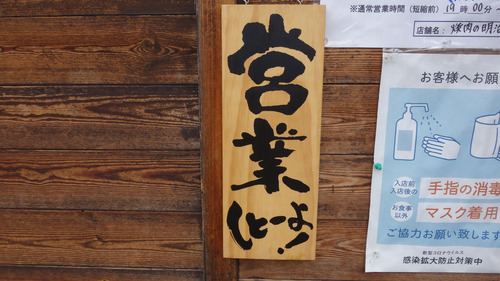 営業
しとーよ!
※通常営業時間（短縮前）19時00分～
店舗名: 焼肉の明治
お客様へお願
入店前
入店後の
手指の消毒
お食事
以外
マスク着用
ご協力お願い致します
新型コロナウイルス
感染拡大防止対策中